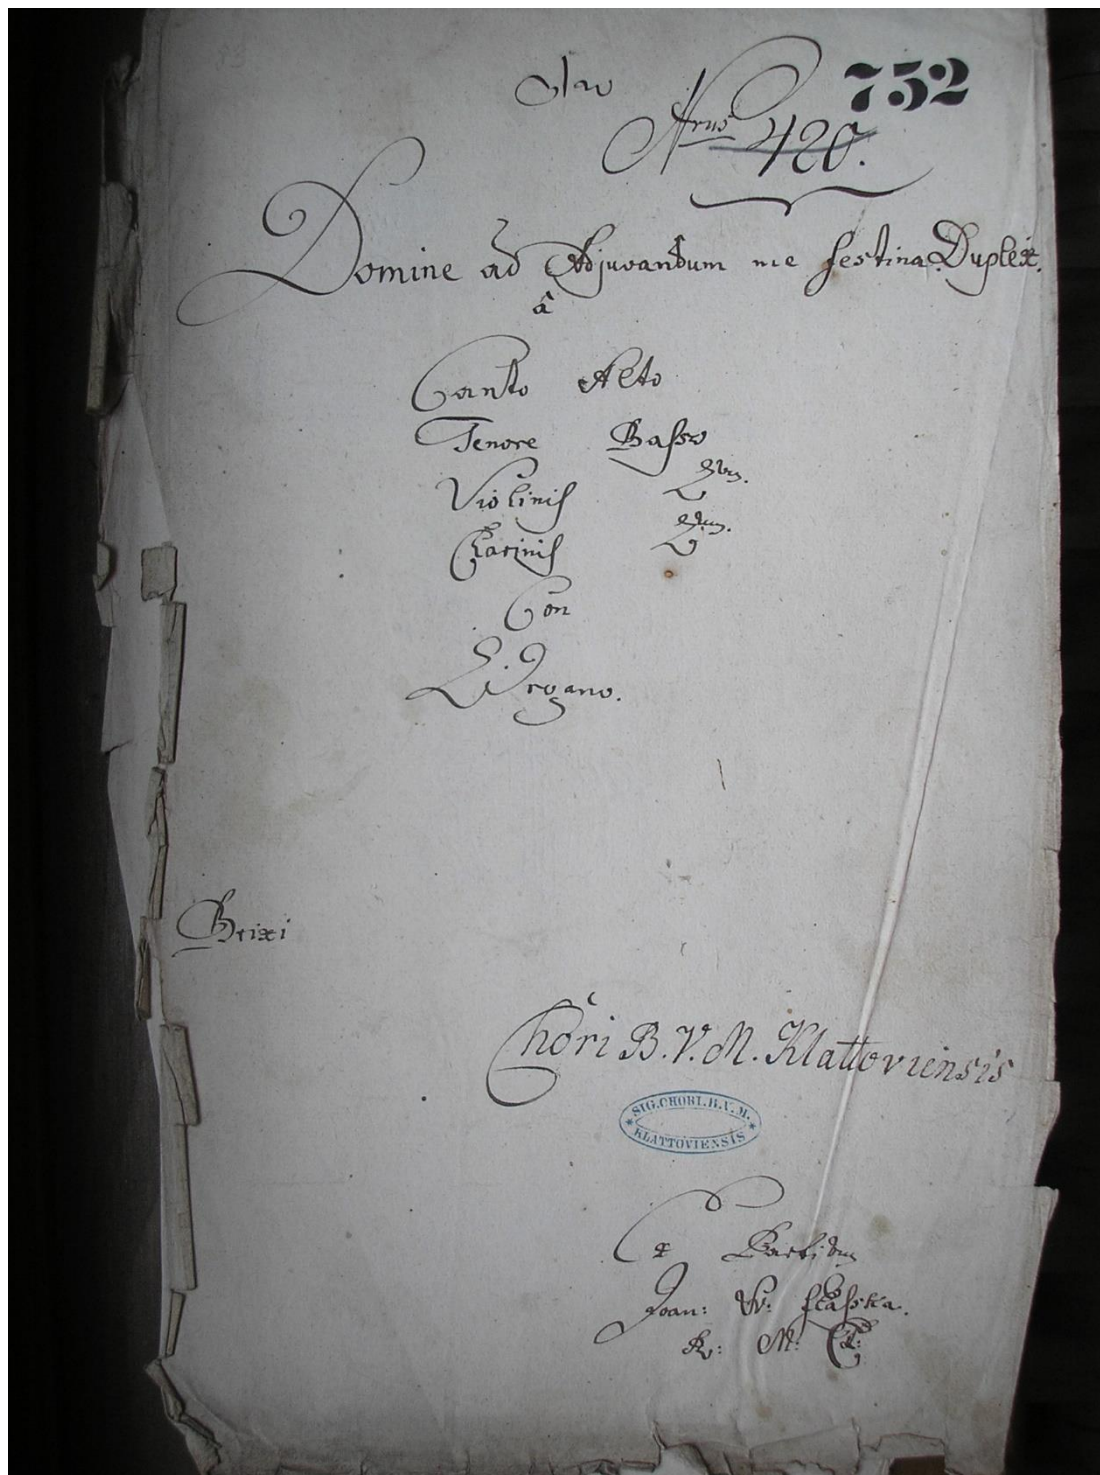 752
Nrus 420.
Domine ad Adjuvandum me festina. Duplex.
â
Canto Alto
Tenore Basso
Violinis 2bus.
Clarinis
Con
Organo.
Brixi
Chori B. V. M. Klattoviensis
SIG. CHORI. B. V. M.
KLATTOVIENSIS
Ex Partibus
Joan: